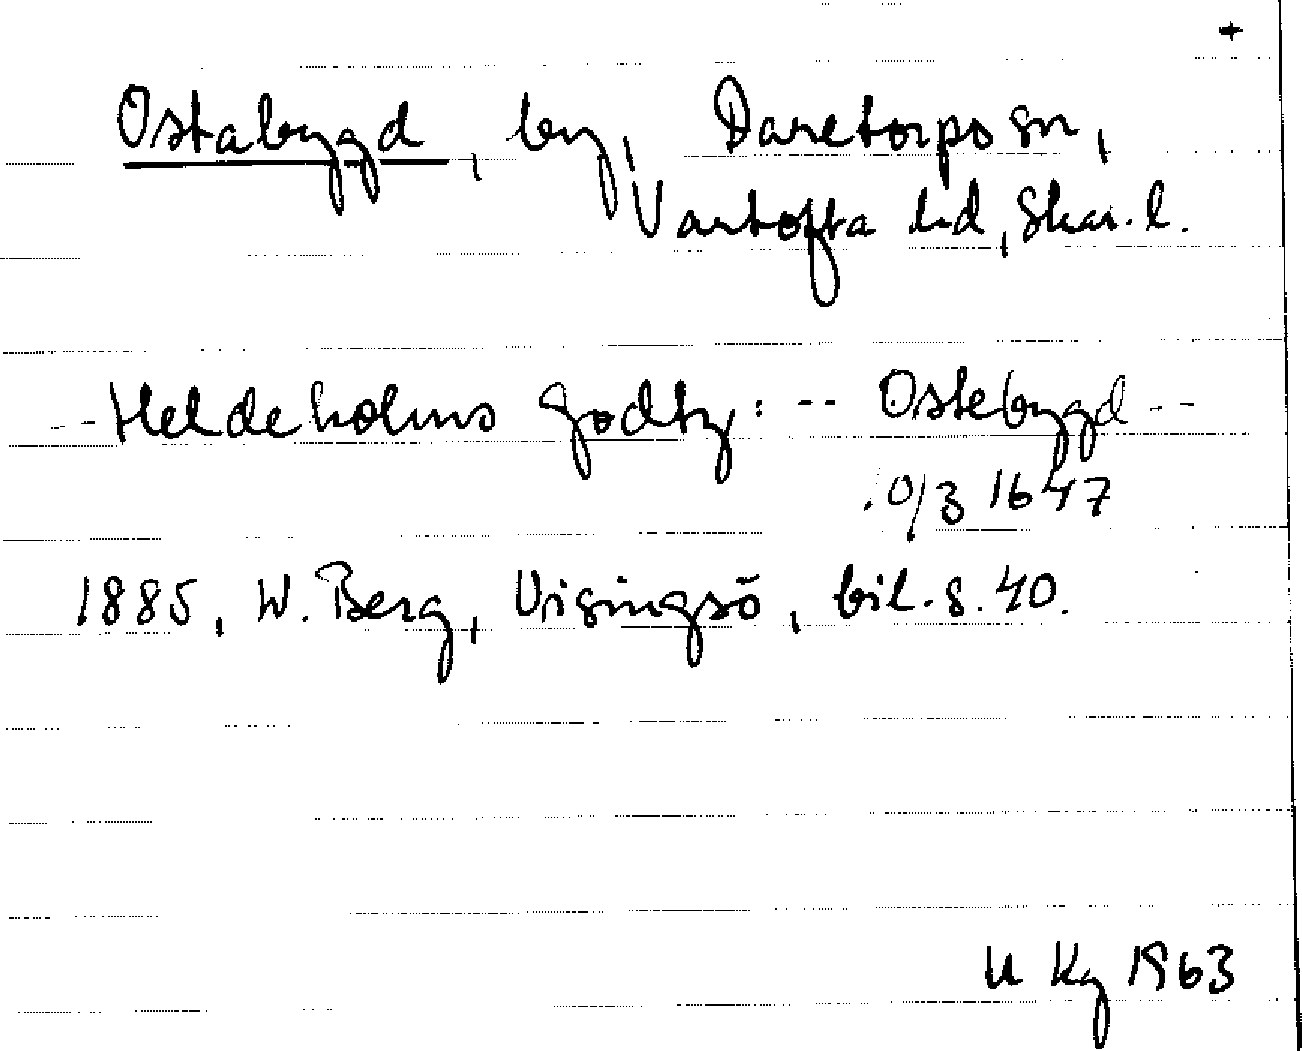 +
Ostabygd, by, Daretorps sn,
Vartofta hd, Skar. l.
-- Heldeholms godtz: -- Ostebygd --
10/3 1647
1885, W. Berg, Visingsö, bil. s. 40.
U Kg 1963